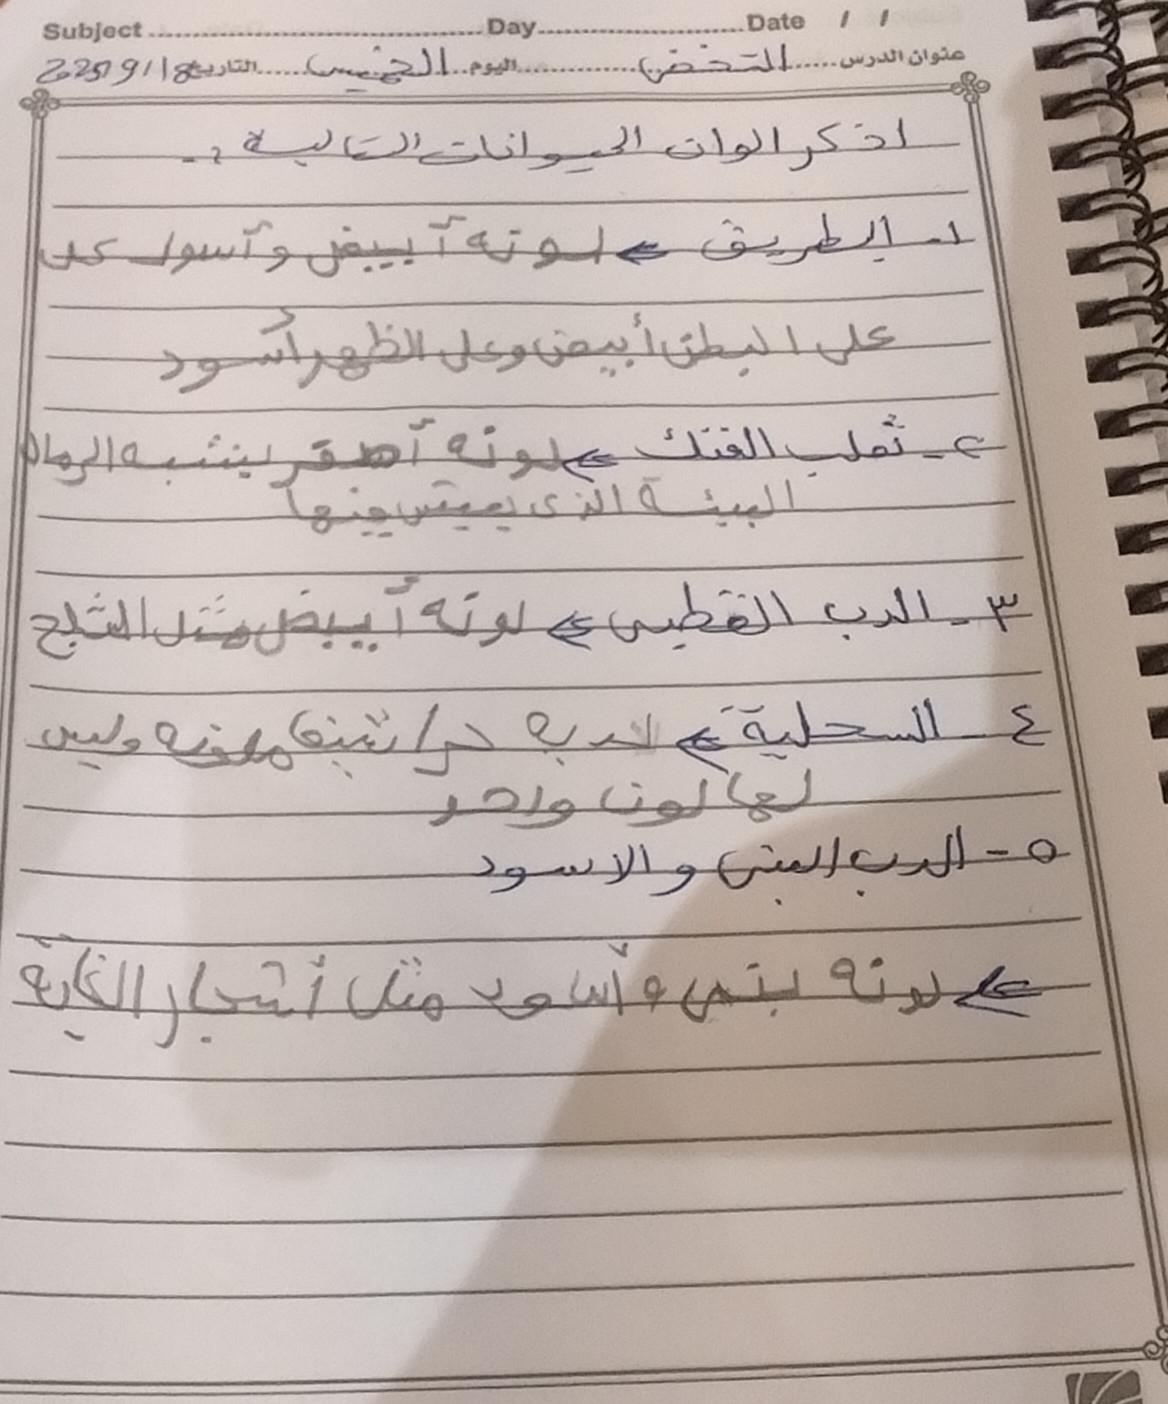 Subject ........ Day ........ Date / /
عنوان الدرس ..... التخفى ..... اليوم ..... الخميس ..... التاريخ 18/9/2025
اذكر الوان الحيوانات التالية :-
١- البطريق ← لونه أبيض وأسود على
على البطن أبيض وعلى الظهر أسود
٢- ثعلب الفنك ← لونه أصفر يشبه الرمال
البيئة الذى يعيش فيها
٣- الدب القطبى ← لونه أبيض مثل الثلج
٤- السحلية ← لديه حراشيف ملونه وليس
لها لونا واحد
٥- الدب البنى والاسود
← لونه بنى و أسود مثل أشجار الغابة